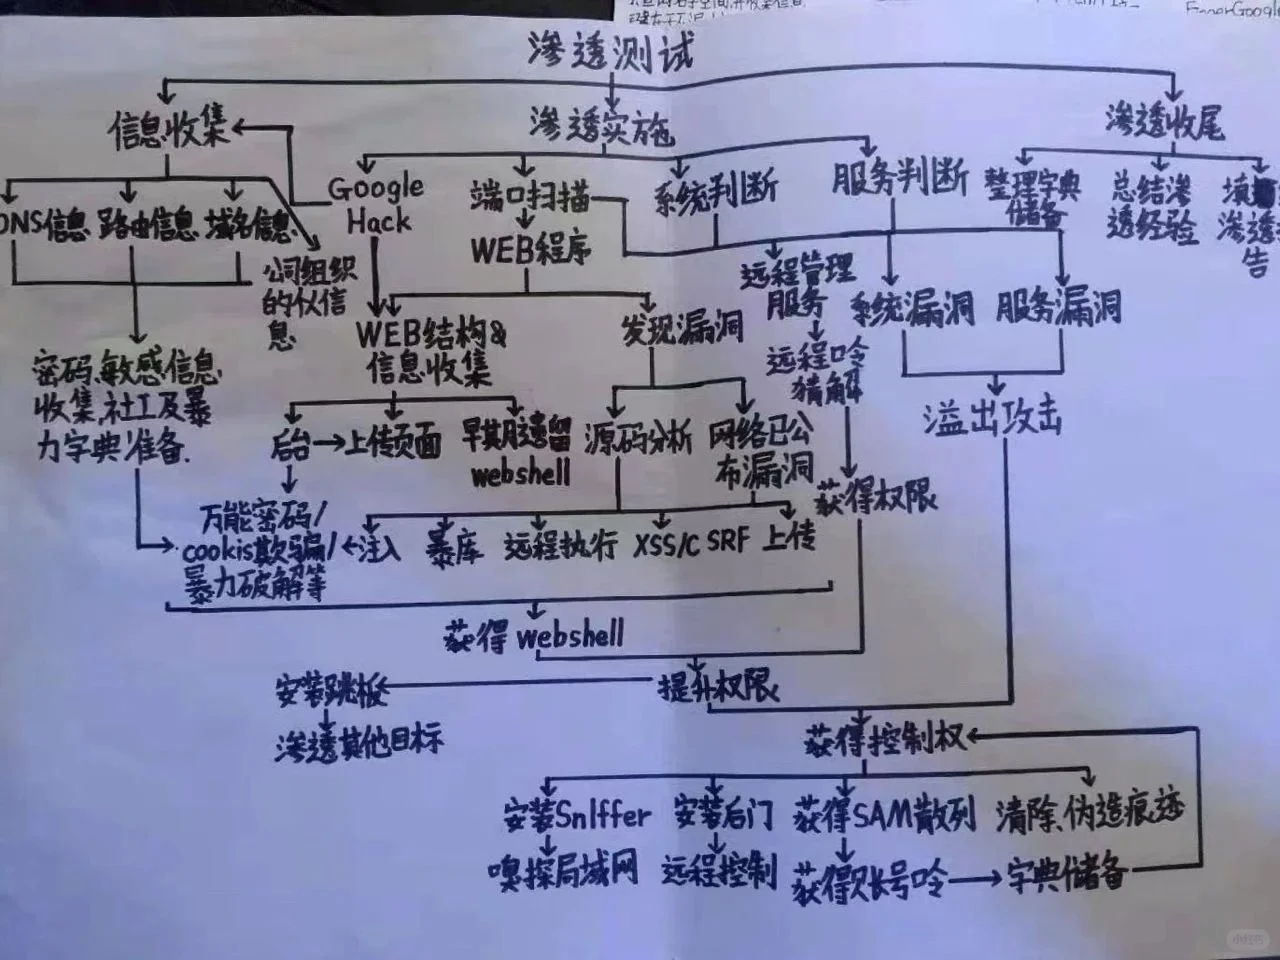 渗透测试
信息收集
渗透实施
渗透收尾
DNS信息
路由信息
域名信息
公司组织
的仪信
息
Google
Hack
端口扫描
系统判断
服务判断
整理字典
储备
总结渗
透经验
填
渗透
告
WEB程序
远程管理
服务
系统漏洞
服务漏洞
密码、敏感信息
收集,社工及暴
力字典准备.
WEB结构&
信息收集
发现漏洞
远程呤
猜解
溢出攻击
后台
上传页面
早期遗留
webshell
源码分析
网络已公
布漏洞
获得权限
万能密码/
cookis欺骗/
暴力破解等
注入
暴库
远程执行
XSS/C SRF
上传
获得webshell
提升权限
安装跳板
渗透其他目标
获得控制权
安装SnIffer
安装后门
获得SAM散列
清除、伪造痕迹
嗅探局域网
远程控制
获得账号呤
字典储备
小红书